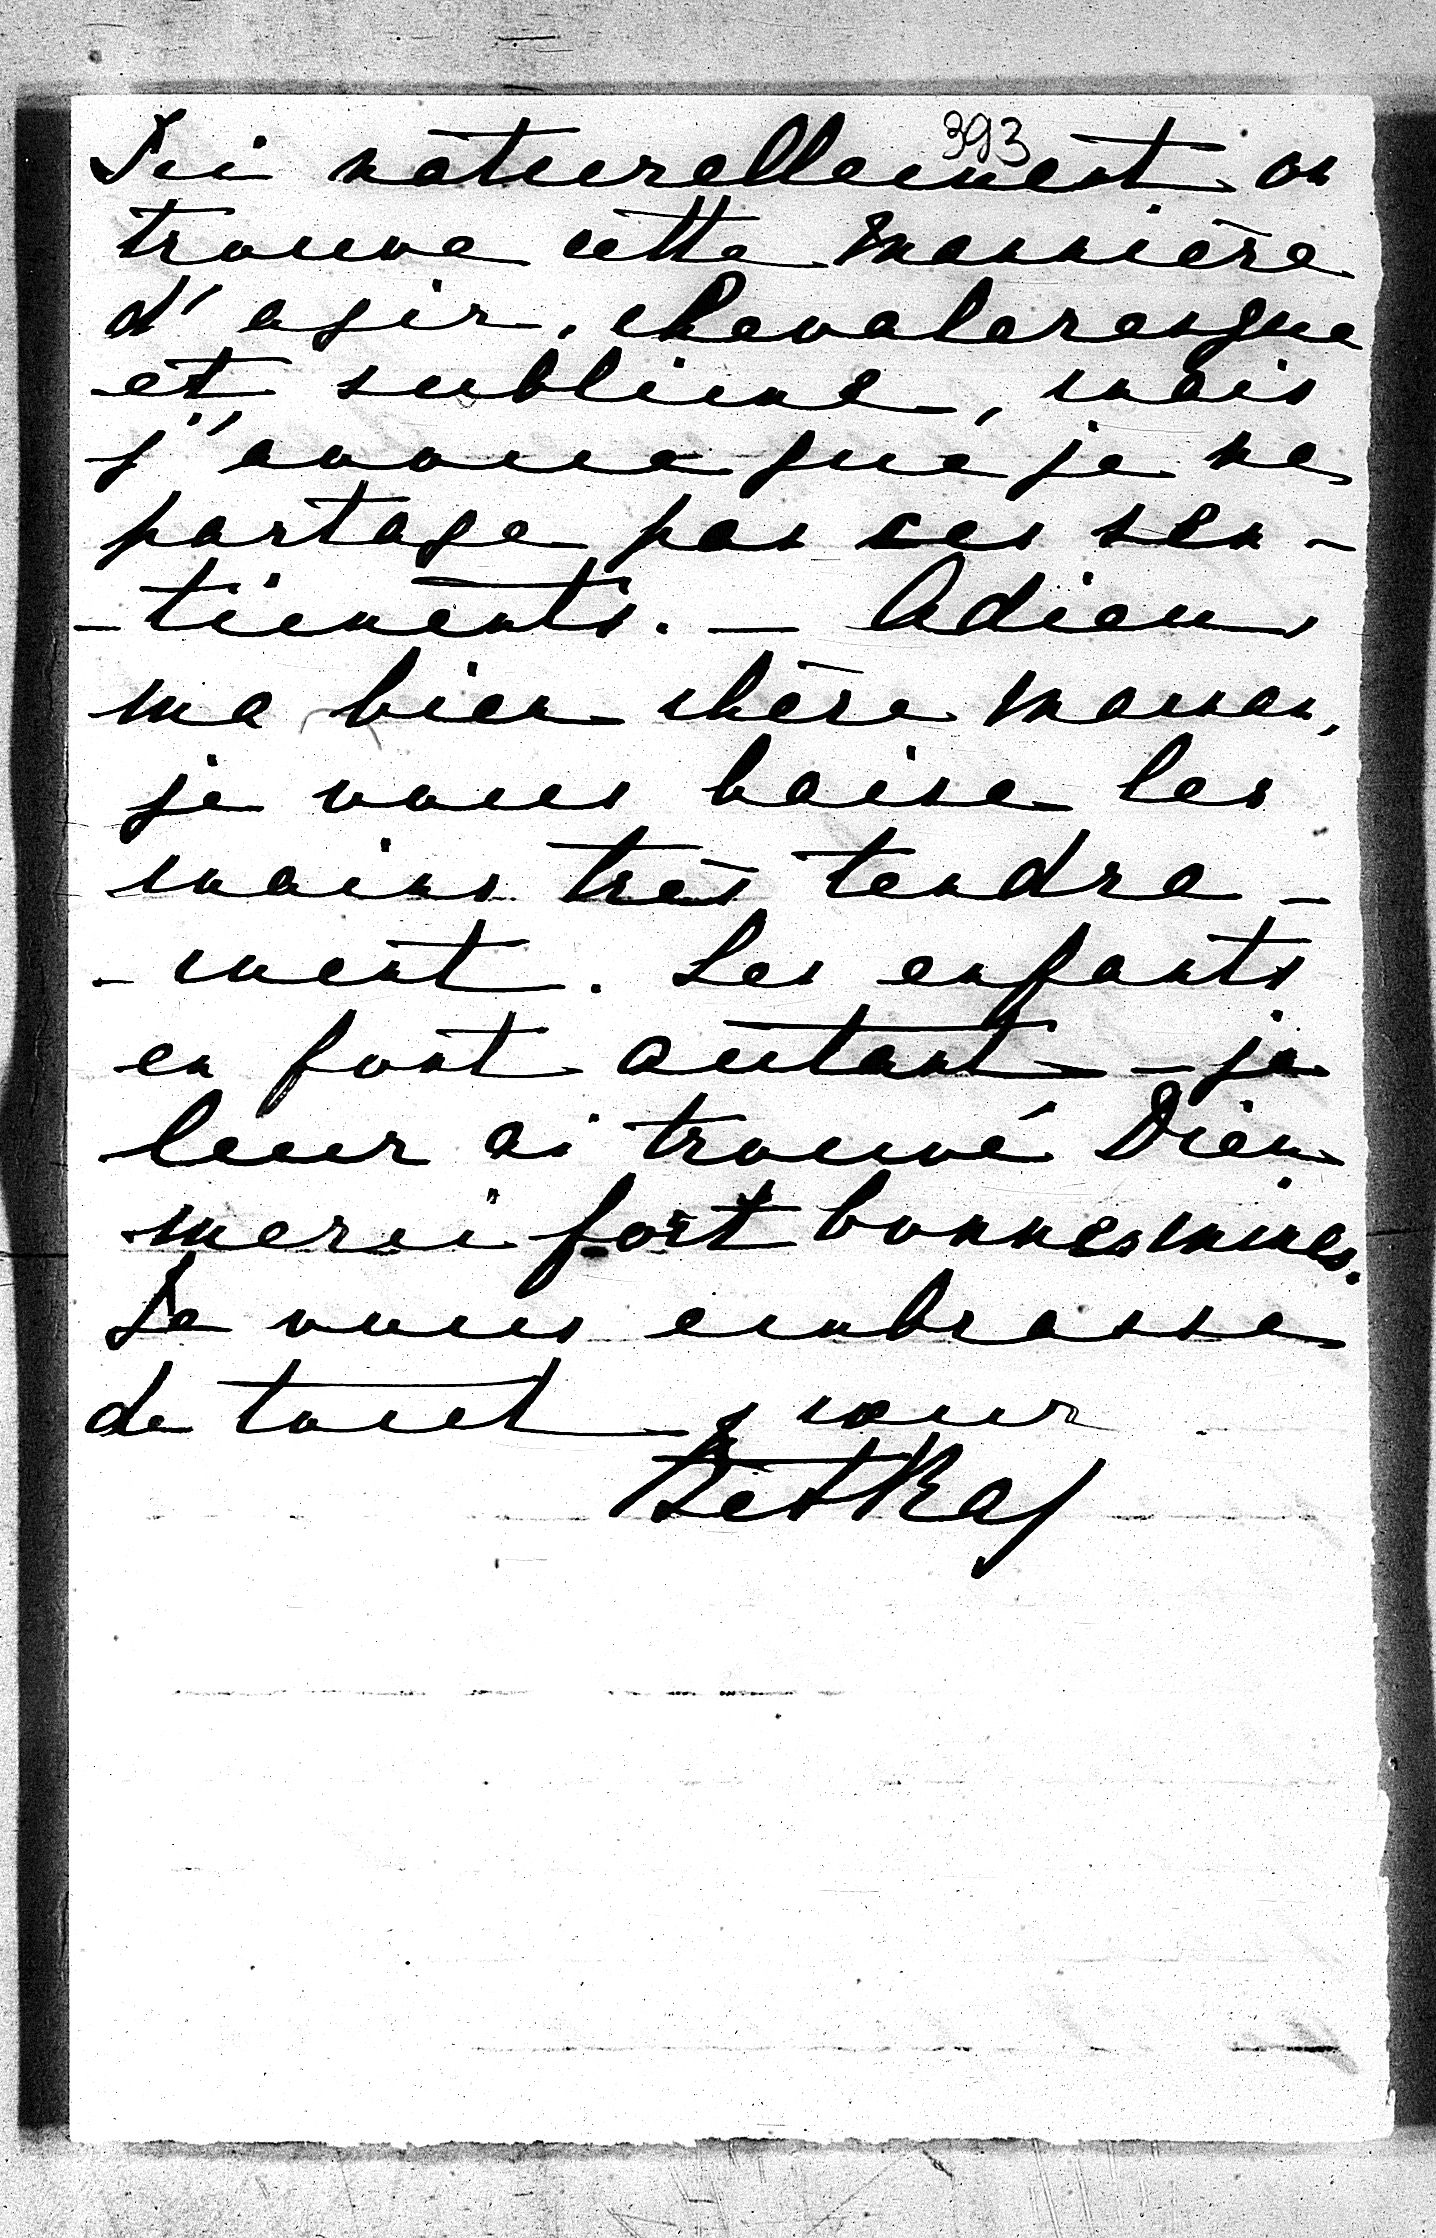 393
Ici naturellement on
trouve cette mannière
d'agir, chevaleresque
et sublime, mais
j'avoue que je ne
partage pas ces sen-
-timents. — Adieu
ma bien chère maman,
je vous baise les
mains très tendre-
-ment. Les enfants
en font autant - je
leur ai trouvé Dieu
merci fort bonnes mines.
Je vous embrasse
de tout cœur
Betka